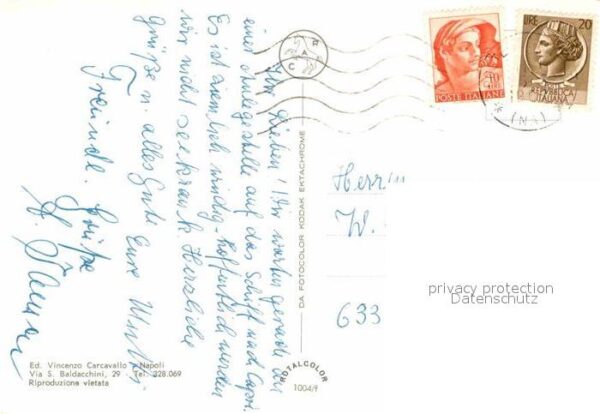 Ihr Lieben! Wir warten gerade an
einer Anlegestelle auf das Schiff nach Capri.
Es ist ziemlich windig – hoffentlich werden
wir nicht seekrank. Herzliche
Grüße u. alles Gute Eure
Freunde. Grüße
H.
Ed. Vincenzo Carcavallo - Napoli
Via S. Baldacchini, 29 - Tel. 328.069
Riproduzione vietata
DA FOTOCOLOR KODAK EKTACHROME
ROTALCOLOR
1004/f
R A C
POSTE ITALIANE
LIRE 20
ITALIANA
(NA)
Herrn
W.
633
privacy protection
Datenschutz